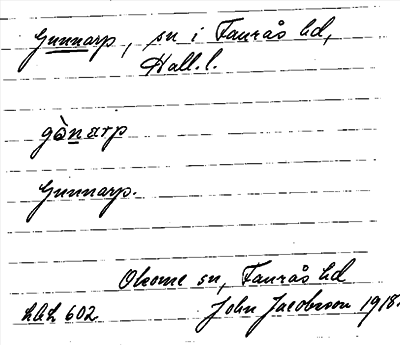 Gunnarp, sn i Faurås hd,
Hall. l.
gònarp
Gunnarp.
Okome sn, Faurås hd
John Jacobsson 1918.
602